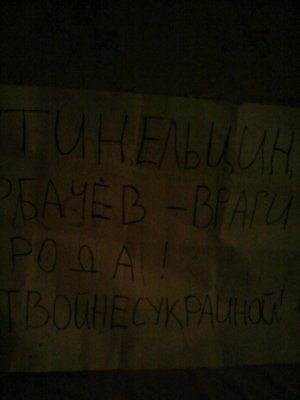 ТИН, ЕЛЬЦИН,
РБАЧЁВ – ВРАГИ
РОДА!
ТВОЙНЕСУКРАИНОЙ!